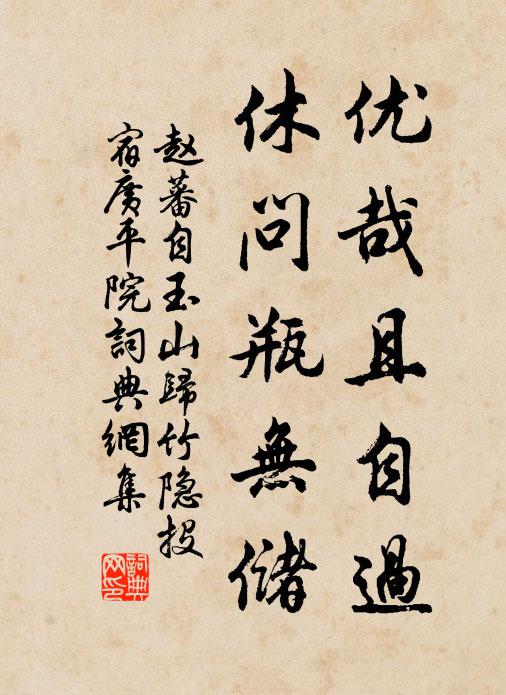 优哉且自過
休问瓶無儲
赵蕃自玉山歸竹隐投
宿廣平院詞典網集
詞典网印